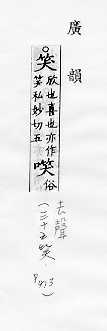 廣韻
○笑欣也喜也亦作
笑私妙切五㗛俗
去聲
(三十五笑
P413)